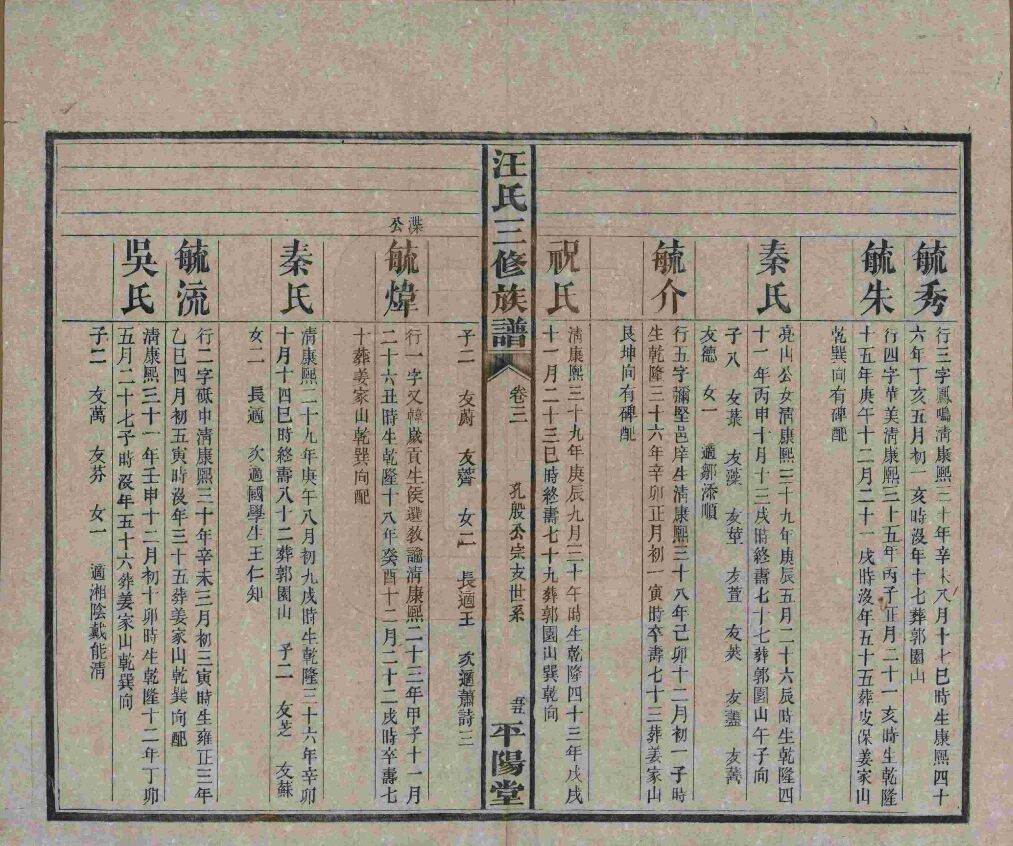 毓秀
行三字鳳鳴清康熙三十年辛未八月十七巳時生康熙四十
六年丁亥五月初一亥時沒年十七葬郭園山
毓朱
行四字華美清康熙三十五年丙子正月二十一亥時生乾隆
十五年庚午十二月二十一戌時沒年五十五葬皮保姜家山
乾巽向有碑配
秦氏
亮山公女清康熙三十九年庚辰五月二十六辰時生乾隆四
十一年丙申十月十三戌時終壽七十七葬郭園山午子向
子八 友葉 友藻 友華 友萱 友英 友藎 友菁
友德 女一 適鄒添順
毓介
行五字彌堅邑庠生清康熙三十八年己卯十二月初一子時
生乾隆三十六年辛卯正月初一寅時卒壽七十三葬姜家山
艮坤向有碑配
祝氏
清康熙三十九年庚辰九月三十午時生乾隆四十三年戊戌
十一月二十三巳時終壽七十九葬郭園山巽乾向
汪氏三修族譜
卷三
孔殷公宗支世系
五
平陽堂
子二 友蔚 友薺 女二 長適王 次適蕭詩三
渫公
毓煒
行一字又韓歲貢生侯選教諭清康熙二十三年甲子十一月
二十六丑時生乾隆十八年癸酉十二月二十二戌時卒壽七
十葬姜家山乾巽向配
秦氏
清康熙二十九年庚午八月初九戌時生乾隆三十六年辛卯
十月十四巳時終壽八十二葬郭園山 子二 友芝 友蘇
女二 長適 次適國學生王仁知
毓流
行二字砥中清康熙三十年辛未三月初三寅時生雍正三年
乙巳四月初五寅時沒年三十五葬姜家山乾巽向配
吳氏
清康熙三十一年壬申十二月初十卯時生乾隆十二年丁卯
五月二十七子時沒年五十六葬姜家山乾巽向
子二 友萬 友芬 女一 適湘陰戴能清